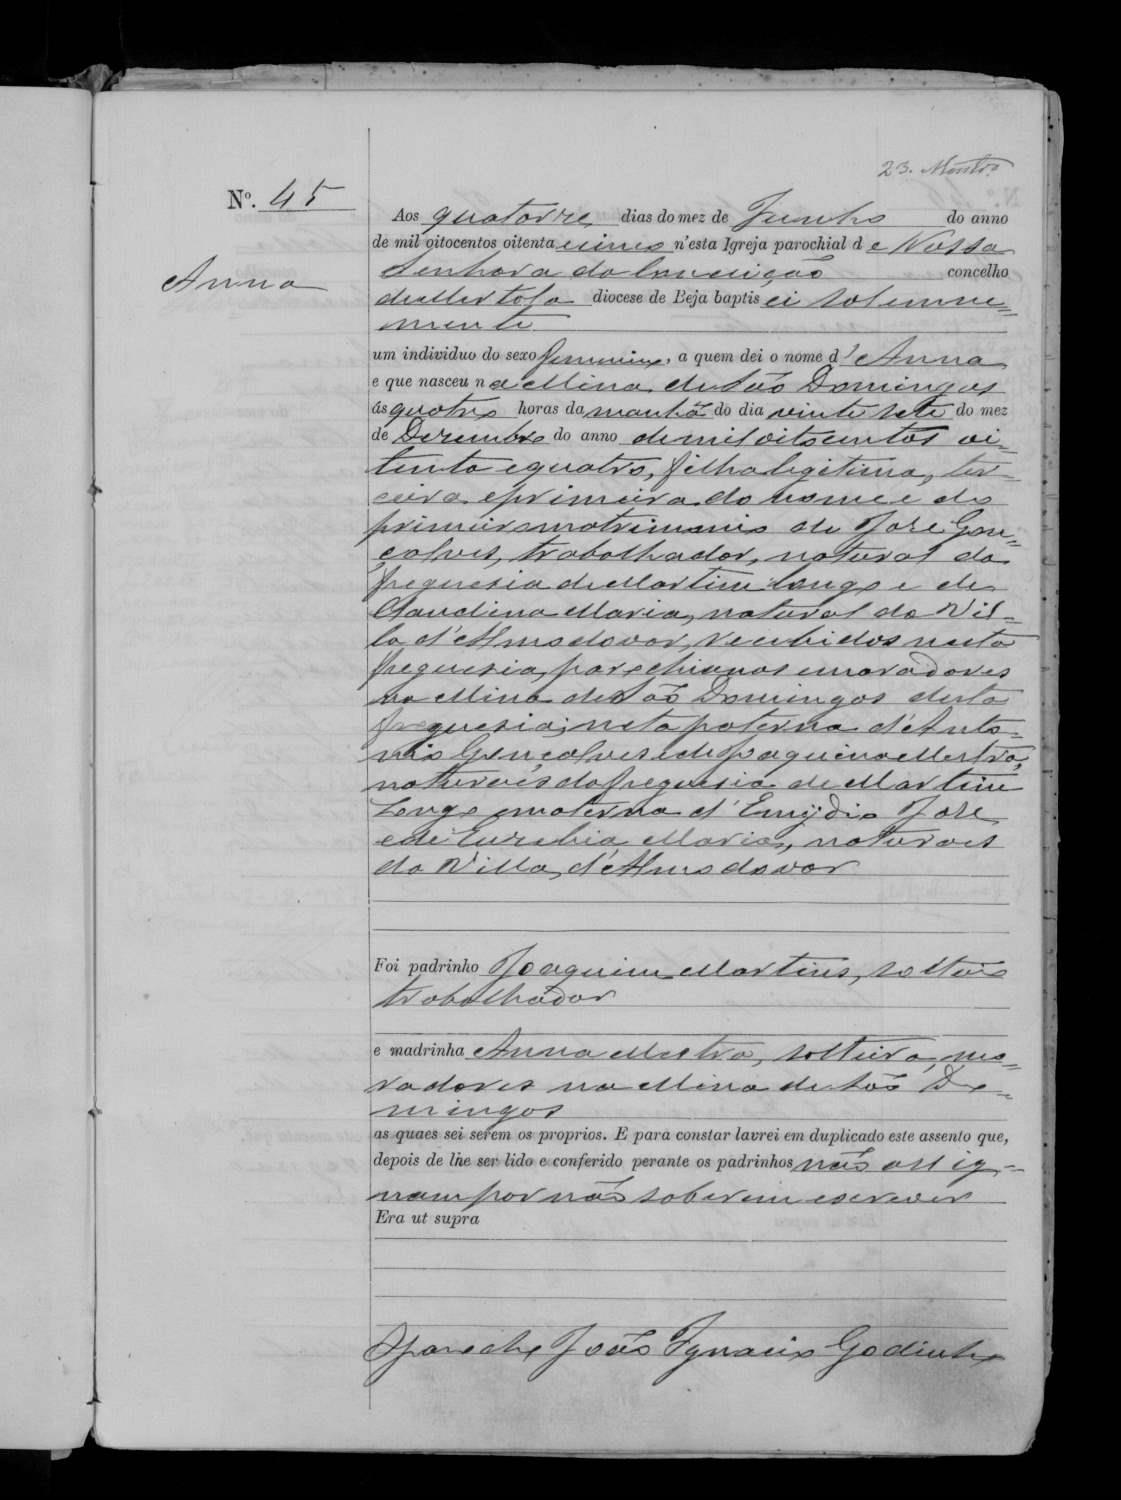 23. Montrº
Nº. 45
Anna
Aos quatorze dias do mez de Junho do anno
de mil oitocentos oitenta e cinco n'esta Igreja parochial de Nossa
Senhora da Conceição concelho
de Mertola diocese de Beja baptisei solemne=
mente
um individuo do sexo feminino, a quem dei o nome d'Anna
e que nasceu na Mina de São Domingos
ás quatro horas da manhã do dia vinte sete do mez
de Dezembro do anno de mil oitocentos oi=
tenta e quatro, filha legitima, ter=
ceira e primeira do nome e do
primeiro matrimonio de José Gon=
çalves, trabalhador, natural da
freguesia de Martim Longo e de
Claudina Maria, natural da Vil=
la d'Almodovar, recebidos nesta
freguesia, parochianos e moradores
na Mina de São Domingos desta
freguesia; neta paterna d'Anto=
nio Gonçalves e de Joaquina Mestra,
naturaes da freguesia de Martim
Longo e materna d'Emÿdio José
e de Euzebia Maria, naturaes
da Villa d'Almodovar
Foi padrinho Joaquim Martins, solteiro
trabalhador
e madrinha Anna Mestra, solteira, mo=
radores na Mina de São Do=
mingos
as quaes sei serem os proprios. E para constar lavrei em duplicado este assento que,
depois de lhe ser lido e conferido perante os padrinhos não assig=
nam por não saberem escrever
Era ut supra
O Parocho João Ignacio Godinho